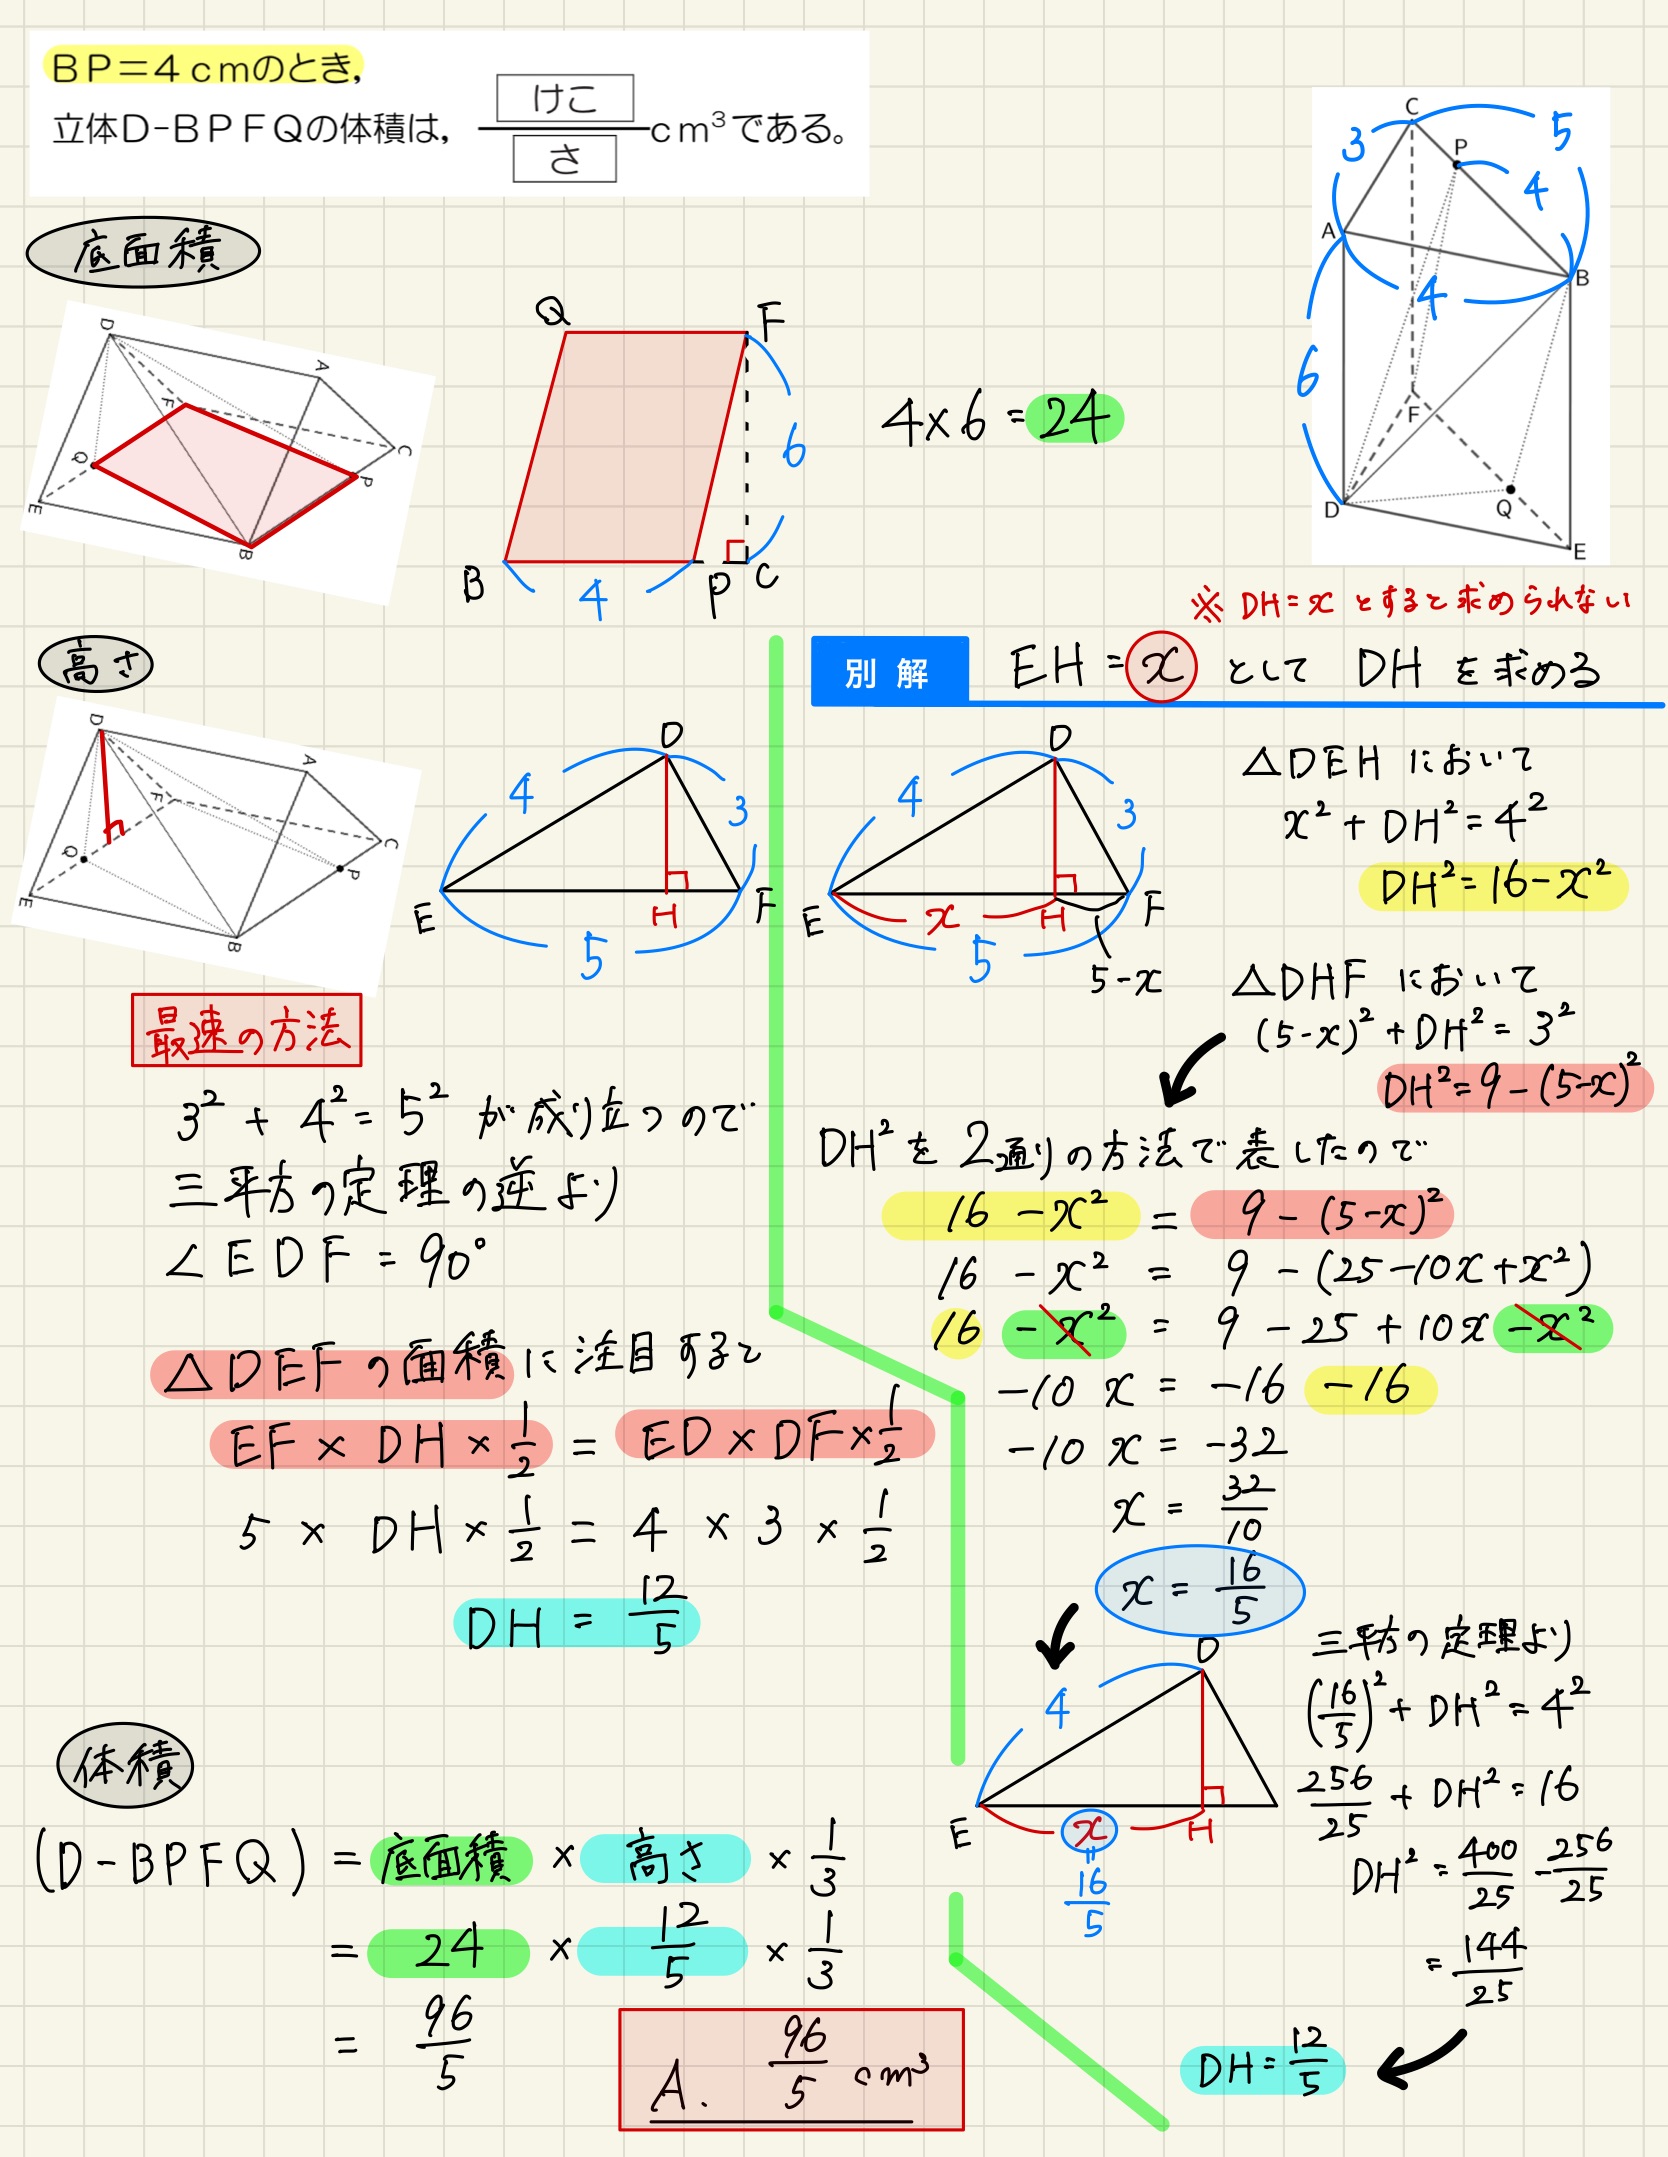 BP=4cmのとき,
立体D-BPFQの体積は, けこ/さ cm³である。
C
3
5
P
4
A
B
4
6
F
D
Q
E
底面積
D
A
F
C
Q
P
E
B
Q
F
6
B
4
P
C
4×6=24
※DH=xとすると求められない
高さ
D
A
F
C
Q
P
E
B
D
4
3
E
H
F
5
最速の方法
3²+4²=5²が成り立つので
三平方の定理の逆より
∠EDF=90°
△DEFの面積に注目すると
EF×DH×1/2=ED×DF×1/2
5×DH×1/2=4×3×1/2
DH=12/5
別解 EH=xとしてDHを求める
D
4
3
E
x
H
F
5
5-x
△DEHにおいて
x²+DH²=4²
DH²=16-x²
△DHFにおいて
(5-x)²+DH²=3²
DH²=9-(5-x)²
DH²を2通りの方法で表したので
16-x²=9-(5-x)²
16-x²=9-(25-10x+x²)
16-x²=9-25+10x-x²
-10x=-16-16
-10x=-32
x=32/10
x=16/5
D
4
E
x
H
=
16/5
三平方の定理より
(16/5)²+DH²=4²
256/25+DH²=16
DH²=400/25-256/25
=144/25
DH=12/5
体積
(D-BPFQ)=底面積×高さ×1/3
=24×12/5×1/3
=96/5
A. 96/5 cm³